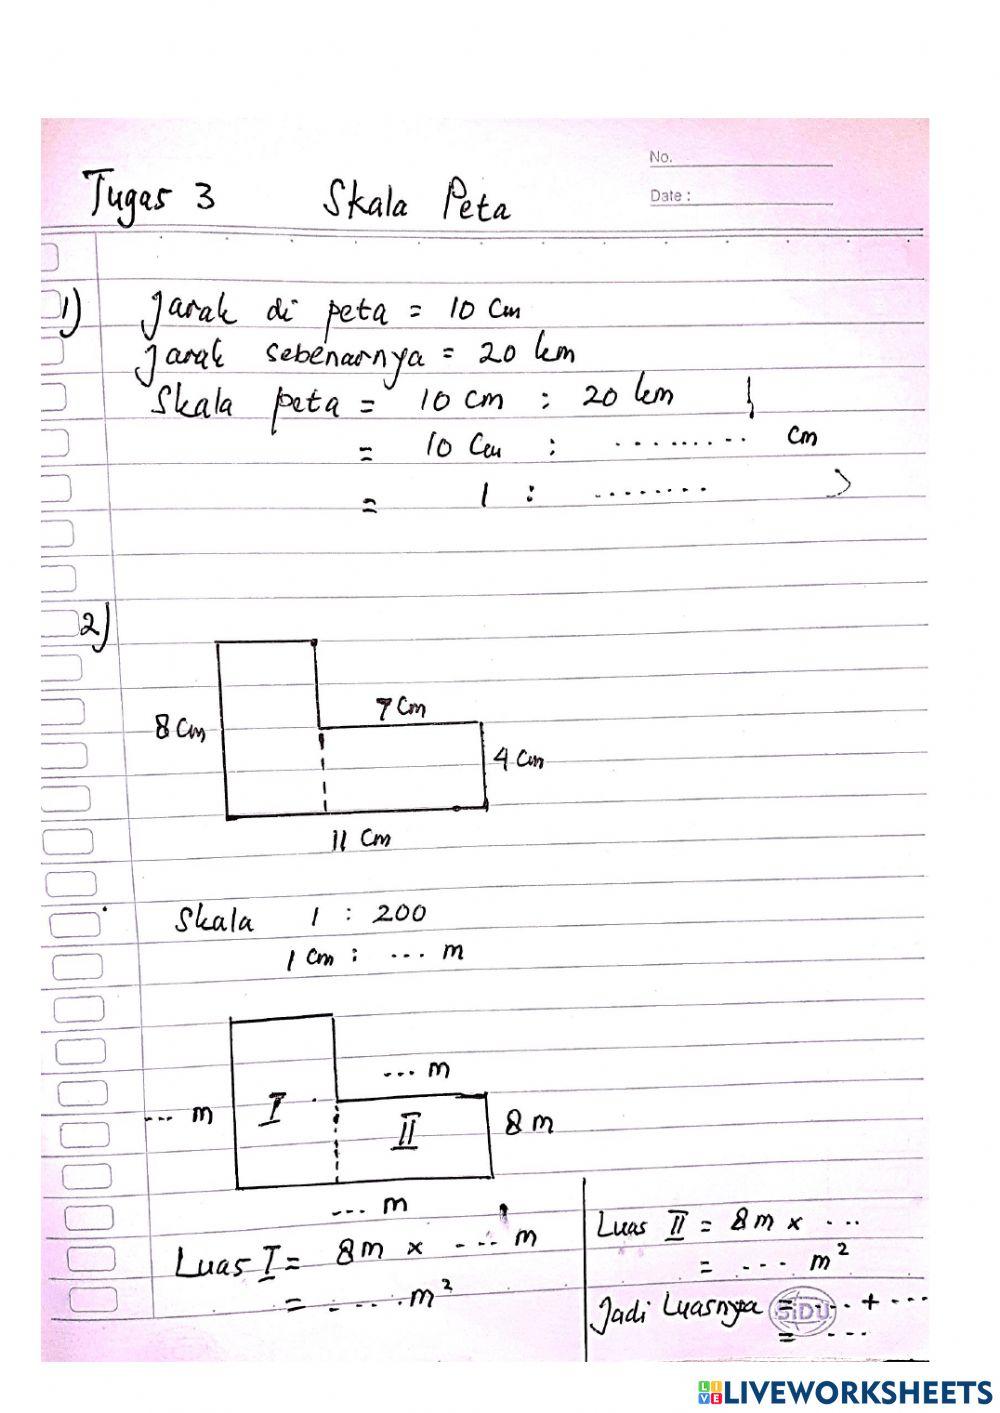 No.
Date :
Tugas 3 Skala Peta
1) Jarak di peta = 10 cm
Jarak sebenarnya = 20 km
Skala peta = 10 cm : 20 km
= 10 cm : ......... cm
= 1 : ........
2)
7 cm
8 cm
4 cm
11 cm
Skala 1 : 200
1 cm : ... m
... m
... m I II 8 m
... m
Luas I = 8m x ... m
= ..... m²
Luas II = 8m x ...
= .... m²
Jadi Luasnya = ... + ...
= ...
SiDU
LIVEWORKSHEETS